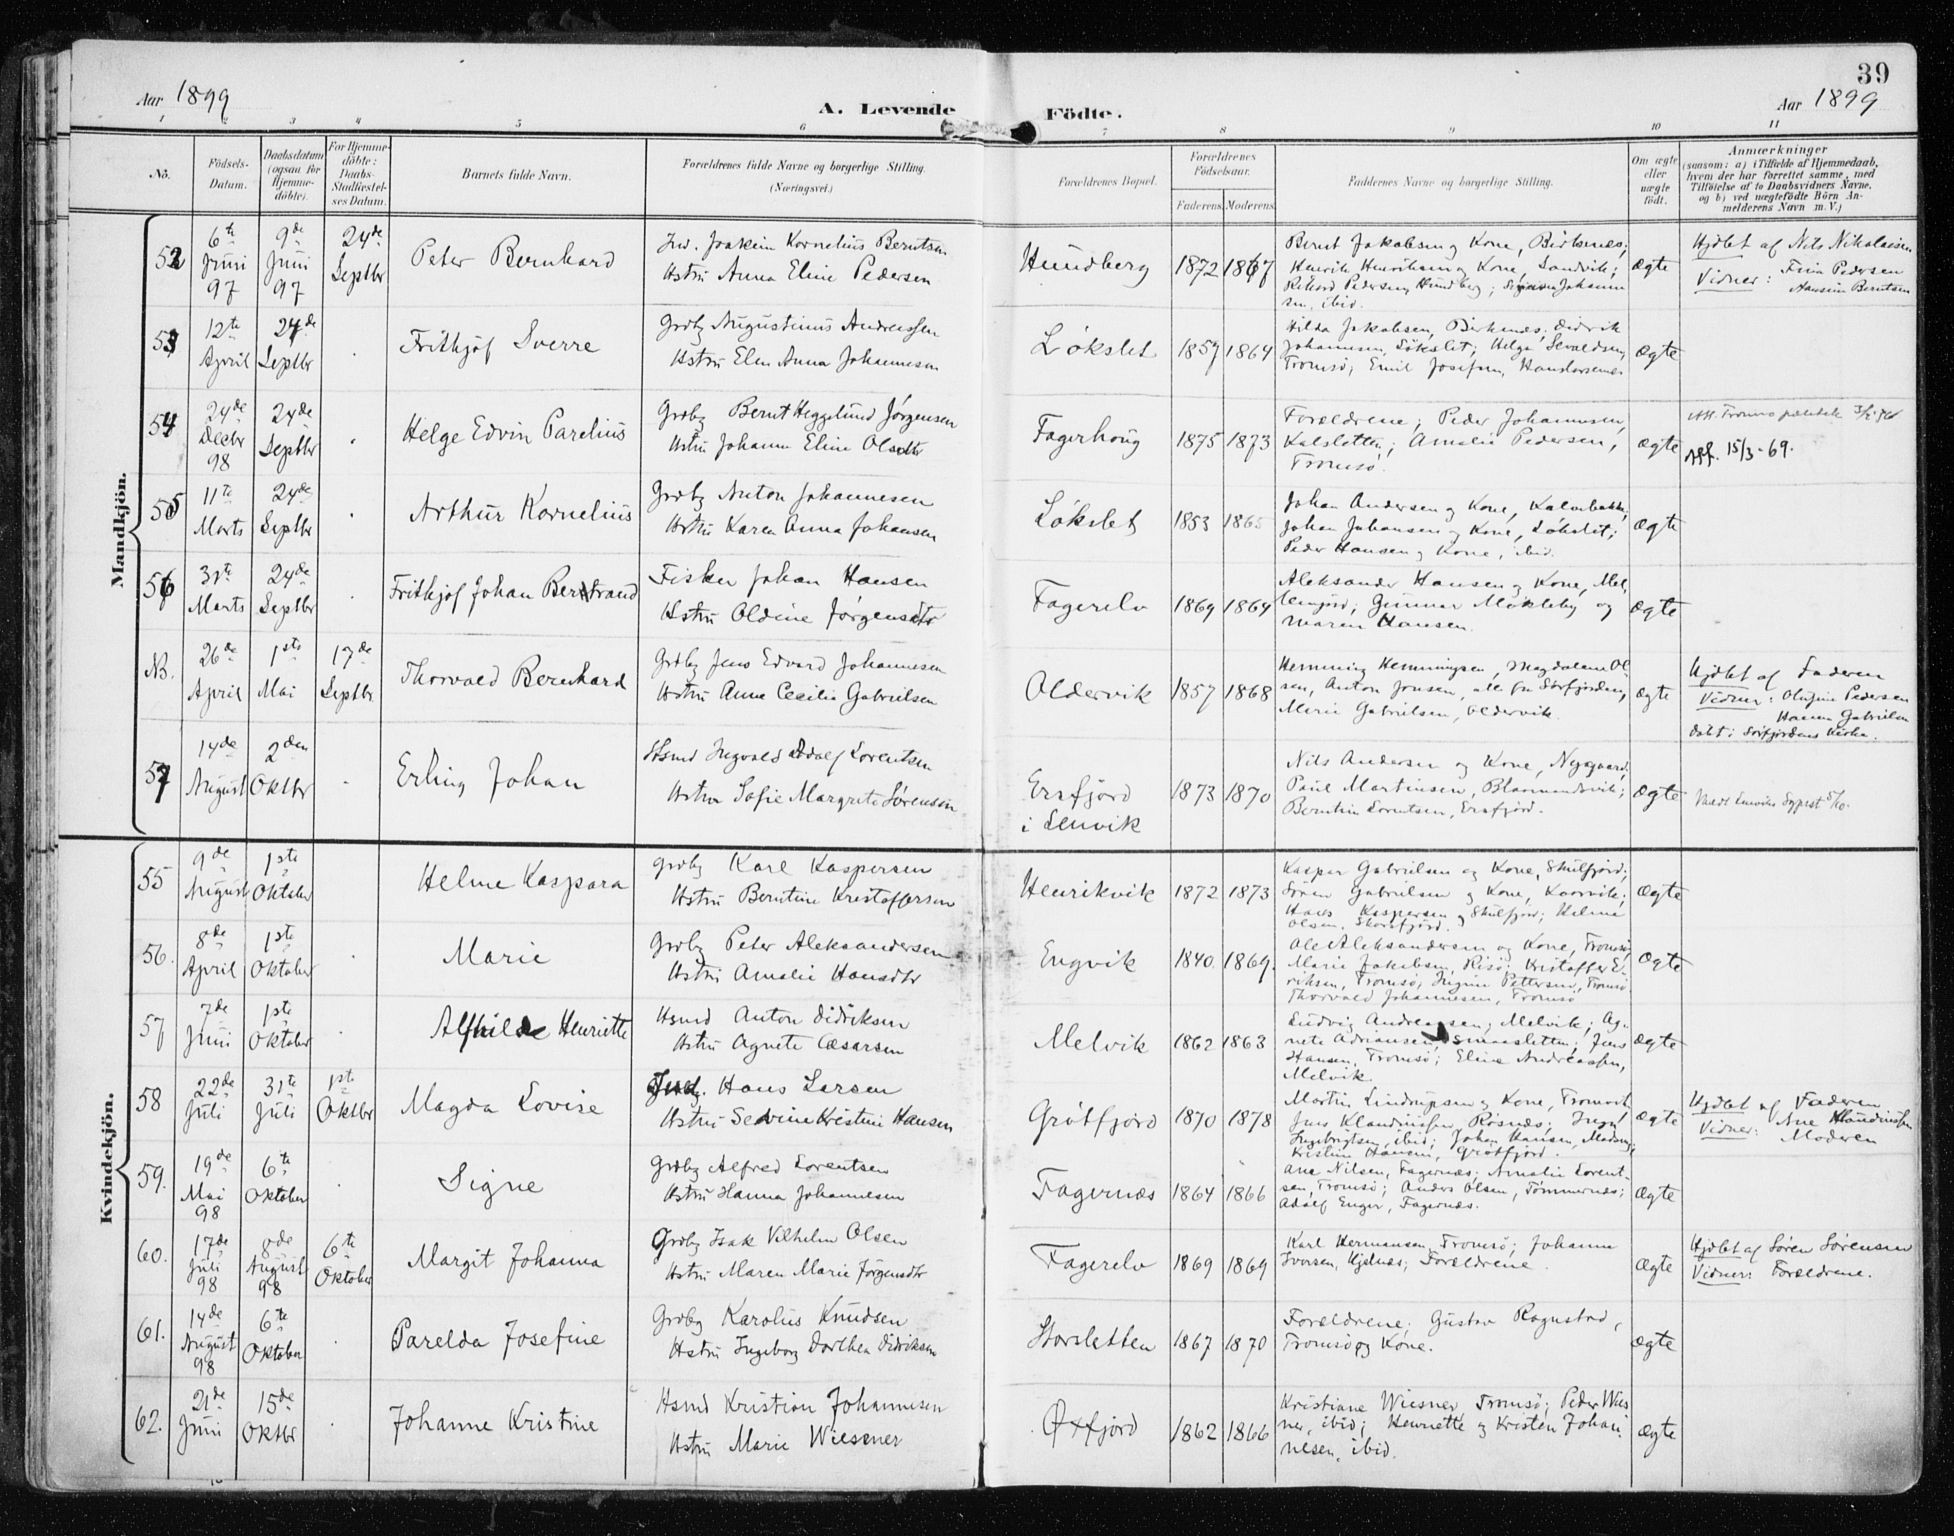 39
Aar 1899
A. Levende Födte.
Aar 1899
1 2 3 4 5 6 7 8 9 10 11
No.
Födsels-
Datum.
Daabsdatum
(ogsaa for
Hjemme-
döbte).
For Hjemme-
döbte:
Daabs-
Stadfæstel-
ses Datum.
Barnets fulde Navn.
Forældrenes fulde Navne og borgerlige Stilling.
(Næringsvei.)
Forældrenes Bopæl.
Forældrenes
Födselsaar.
Faderens. Moderens.
Faddernes Navne og borgerlige Stilling.
Om ægte
eller
uægte
födt.
Anmærkninger
(saasom: a) i Tilfælde af Hjemmedaab,
hvem der har forrettet samme, med
Tilföielse af to Daabsvidners Navne,
og b) ved uægtefödte Börn An-
melderens Navn m. V.)
Mandkjön.
52
6te Juni 97
9de Juni 97
24de Septbr
Peter Bernhard
Ind. Joakim Kornelius Berntsen
Hstru Anna Eline Pedersen
Hundberg
1872 1867
Bernt Jakobsen og Kone, Birknes;
Henrik Henriksen og Kone, Sandvik;
Rikard Pedersen, Hundberg;
ibid.
ægte
Hjdbt af Nils Nikolaisen
Vidner: Fina Pedersen
Hansine Berntsen
53
12te April
24de Septbr
Frithjof Sverre
Grdbr Augustinus Andreassen
Hstru Elen Anna Johannesen
Løkslet
1857 1864
Hilda Jakobsen, Birknes; Didrik
Johannesen, Løkslet; Helga Sevaldsen,
Tromsø; Emil Josefsen,
ægte
54
24de Decbr 98
24de Septbr
Helge Edvin Parelius
Grdbr Bernt Heggelund Jørgensen
Hstru Johanne Eline Olsdtr
Fagerhoug
1875 1873
Forældrene; Peder Johannesen,
Kalsletten; Amalie Pedersen,
Tromsø.
ægte
Att. Tromsø
Att. 15/3-69.
55
11te Marts
24de Septbr
Arthur Kornelius
Grdbr Anton Johannesen
Hstru Karen Anna Johansen
Løkslet
1853 1865
Johan Andersen og Kone, Kalvebakke;
Johan Johansen og Kone, Løkslet;
Peder Hansen og Kone, ibid.
ægte
56
31te Marts
24de Septbr
Frithjof Johan Bertrand
Fisker Johan Hansen
Hstru Oldine Jørgensdtr
Fagerelv
1869 1864
Aleksander Hansen og Kone, Mel-
lemjord; Gunnar Møkleby og
Maren Hansen.
ægte
NB.
26de April
1ste Mai
17de Septbr
Thorvald Bernhard
Grdbr Jens Edvard Johannesen
Hstru Anne Cecilia Gabrielsen
Oldervik
1857 1868
Hemming Hemmingsen, Magdalene Ol-
sen, Anton Jensen, alle fra Sørfjorden,
Marie Gabrielsen, Oldervik.
ægte
Hjdbt af Faderen
Vidner: Olufine Pedersen
Hanna Gabrielsen
Døbt i Sørfjordens Kirke.
57
14de August
2den Oktbr
Erling Johan
Hsmd Ingvald Adolf Lorentsen
Hstru Sofie Margrete Sørensen
Ersfjord
i Lenvik
1873 1870
Nils Andersen og Kone, Nygaard;
Paul Martinsen, Blaamandsvik;
Berntin Lorentsen, Ersfjord.
ægte
Kvindekjön.
55
9de August
1ste Oktober
Helme Kaspara
Grdbr Karl Kaspersen
Hstru Berntine Kristoffersen
Henrikvik
1872 1873
Kasper Gabrielsen og Kone, Skulfjord;
Sören Gabrielsen og Kone, Kaarvik;
Hans Kaspersen, Skulfjord; Helma
Olsen, Skorsfjord.
ægte
56.
8de April
1ste Oktober
Marie
Grdbr Peter Aleksandersen
Hstru Amalie Hansdtr
Engvik
1840. 1869.
Ole Aleksandersen og Kone, Tromsø;
Marie Jakobsen, Risø; Kristoffer E-
riksen, Tromsø; Ingine Pettersen, Tromsø
Thorvald Johannesen, Tromsø
ægte
57
7de Juni
1ste Oktober
Alfhilde Henriette
Hsmd Anton Didriksen
Hstru Agnete Cæsarsen
Melvik
1862 1863
Ludvig Andreassen, Melvik; Ag-
nete Adriansen, Smaasletten; Jens
Hansen, Tromsø; Eline Andreassen,
Melvik.
ægte
58
22de Juli
31te Juli
1ste Oktbr
Magda Lovise
Hans Larsen
Hstru Sevrine Kristine Hansen
Grötfjord
1870 1878
Martin Lindrupsen og Kone, Tromvik;
Jens Klaudiussen, Røsnes;
Ingebrigtsen, ibid; Johan Hansen,
Kristine Hansen, Grötfjord.
ægte
Hjdbt af Faderen
Vidner: Ane Klaudiussen
Moderen
59.
19de Mai 98
6te Oktober
Signe
Grdbr Alfred Lorentsen
Hstru Hanna Johannesen
Fagernæs
1864 1866
Ane Nilsen, Fagernæs; Amalie Lorent-
sen, Tromsø; Anders Olsen, Tømmernes;
Adolf Enger, Fagernæs.
ægte
60.
17de Juli 98
8de August 98
6te Oktober
Margit Johanna
Grdbr Isak Vilhelm Olsen
Hstru Maren Marie Jørgensdtr
Fagerelv
1869 1869
Karl Hermansen, Tromsø; Johanna
Iversen, Hjelnæs; Forældrene.
ægte
Hjdbt af Søren Sørensen
Vidner: Forældrene.
61.
14de August 98
6te Oktober
Parelda Josefine
Grdbr Karolus Knudsen
Hstru Ingeborg Dorthea Didriksen
Storsletten
1867 1870
Forældrene; Gustav Rognstad,
Tromsø og Kone.
ægte
62.
21de Juni
15de Oktbr
Johanne Kristine
Hsmd Kristian Johannesen
Hstru Marie Wiesener
Øxfjord
1862 1866
Kristiane Wiesner Tromsø; Peder Wies-
ner, ibid; Henriette og Kristen Johan-
nesen, ibid.
ægte